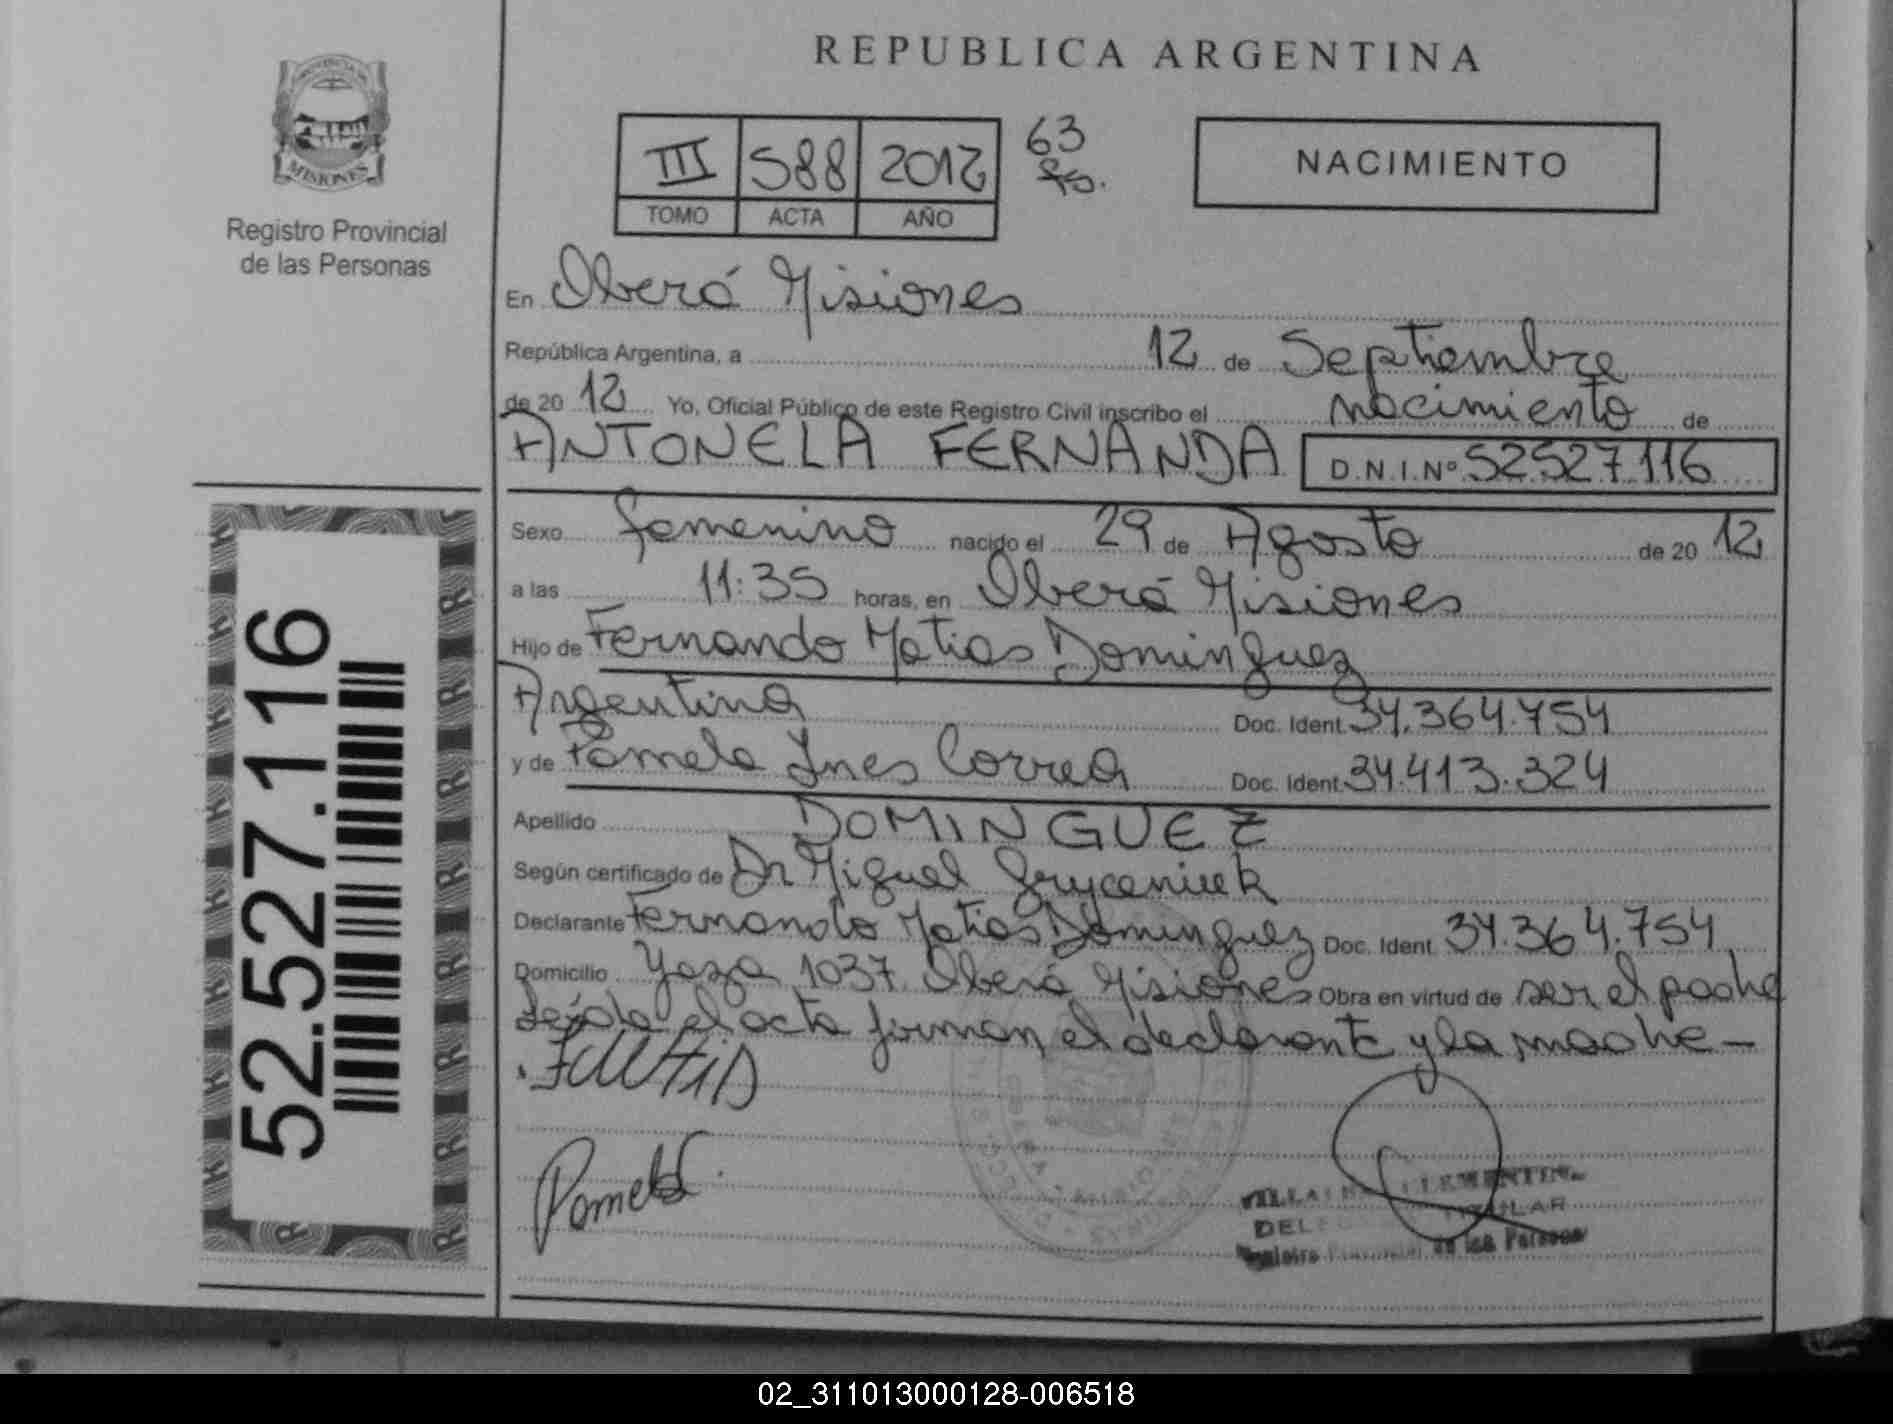 REPUBLICA ARGENTINA
PROVINCIA DE
MISIONES
Registro Provincial
de las Personas
III 588 2012
TOMO ACTA AÑO
63
NACIMIENTO
En Oberá Misiones
República Argentina, a 12 de Septiembre
de 20 12 Yo, Oficial Público de este Registro Civil inscribo el nacimiento de
ANTONELA FERNANDA D.N.I.Nº 52527.116
Sexo femenino nacido el 29 de Agosto de 20 12
a las 11:35 horas, en Oberá Misiones
Hijo de Fernando Matias Dominguez
Argentina Doc. Ident. 34.364.754
y de Pamela Ines Correa Doc. Ident. 34.413.324
Apellido DOMINGUEZ
Según certificado de Dr Miguel
Declarante Fernando Matias Dominguez Doc. Ident. 34.364.754
Domicilio Yaza 1037 Oberá Misiones Obra en virtud de ser el padre
Leída el acta firman el declarante y la madre -
Pamela
VILLALBA CLEMENTINA
DELEGADA TITULAR
Registro Provincial de las Personas
52.527.116
02_311013000128-006518